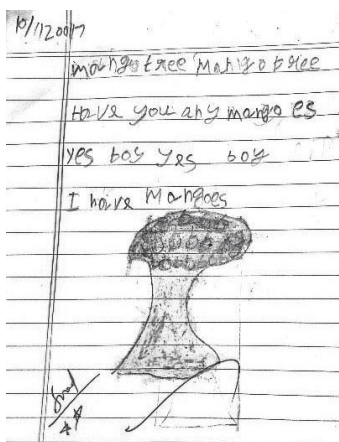 mango tree Mango tree
Have you any mango es
yes boy yes boy
I have Mangoes